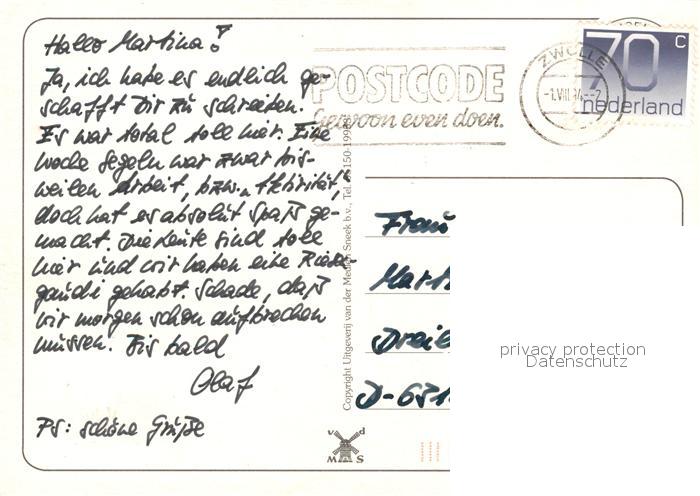 Hallo Martina!
Ja, ich habe es endlich ge-
schafft Dir zu schreiben.
Es war total toll hier. Eine
Woche Segeln war zwar bis-
weilen Arbeit, bzw. „Aktivität,"
doch hat es absolut Spaß ge-
macht. Die Leute sind tolle
hier und wir haben eine Riese-
gaudi gehabt. Schade, daß
wir morgen schon aufbrechen
müssen. Bis bald
Olaf
PS: schöne Grüße
POSTCODE
gewoon even doen.
ZWOLLE
-1.VIII
70 c
nederland
Copyright Uitgeverij van der Meulen Sneek b.v., Tel.
Frau
Dreie
privacy protection
Datenschutz
v d
M S